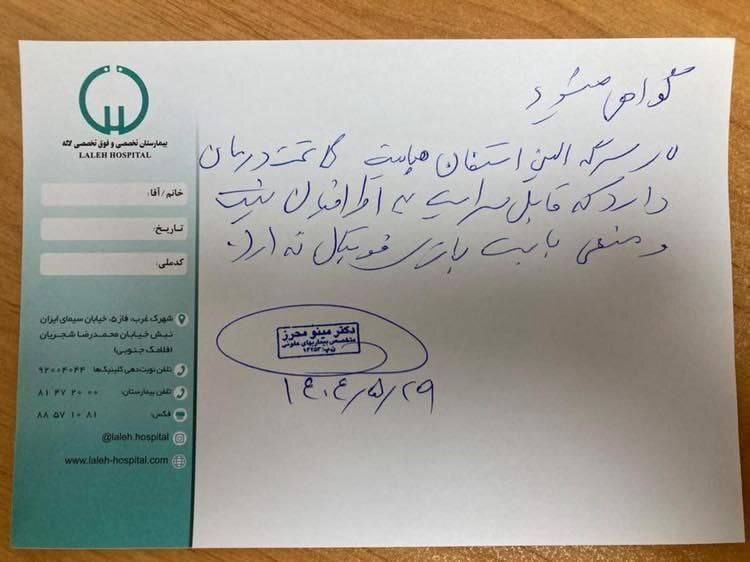 بیمارستان تخصصی و فوق تخصصی لاله
LALEH HOSPITAL
خانم / آقا:
تاریخ:
کدملی:
شهرک غرب، فاز ۵، خیابان سیمای ایران
نبش خیابان محمدرضا شجریان
(فلامک جنوبی)
تلفن نوبت‌دهی کلینیک‌ها: ۹۲۰۰۴۰۴۴
تلفن بیمارستان: ۸۱ ۴۷ ۲۰ ۰۰
فکس: ۸۸ ۵۷ ۱۰ ۸۱
@laleh.hospital
www.laleh-hospital.com
گواهی میشود
سرگه الین استفان هپاتیت تحت درمان
دارد که قابل سرایت به اطرافیان نیست
و منعی بابت بازی فوتبال ندارد.
دکتر مینو محرز
متخصص بیماریهای عفونی
ن.پ: ۱۴۲۵۳
۱۴۰۴/۵/۲۹